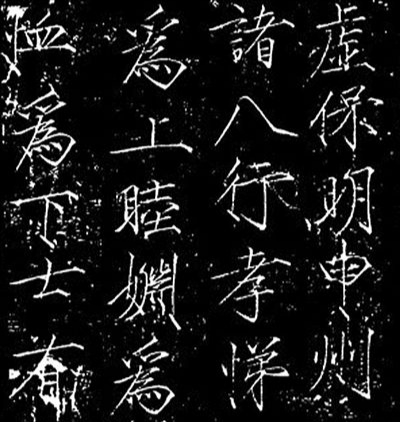 虛保明申州
諸八行孝悌
爲上睦婣爲
恤爲下士有